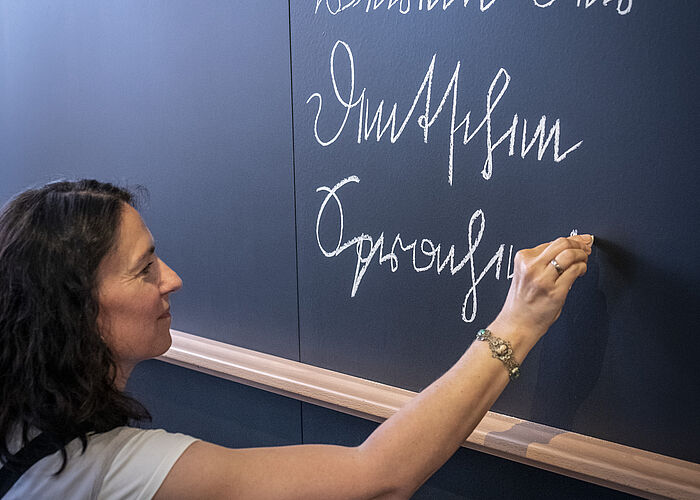 Deutschen
Sprache